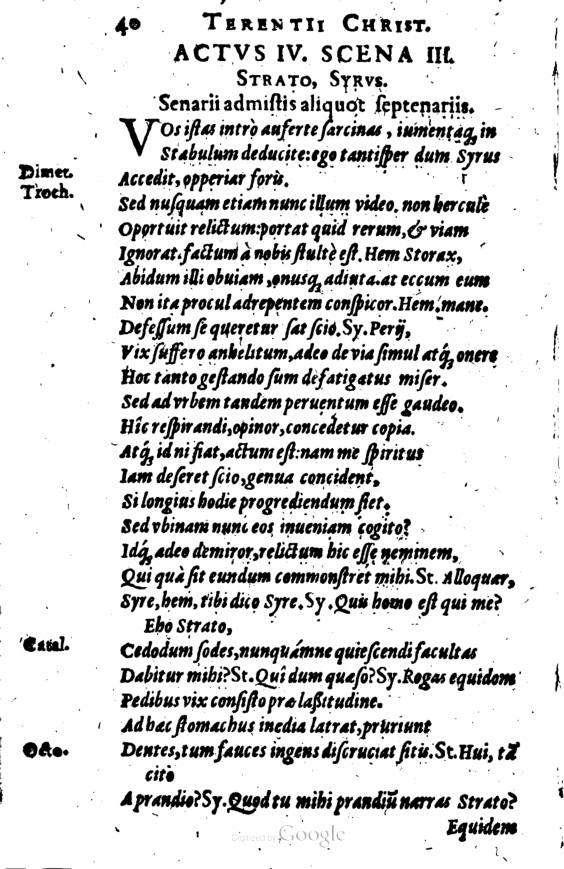 40 TERENTII CHRIST.
ACTVS IV. SCENA III.
STRATO, SYRVS.
Senarii admistis aliquot septenariis.
VOs istas intrò auferte sarcinas, iumentaq́; in
Stabulum deducite: ego tantisper dum Syrus
Dimet.
Troch.
Accedit, opperiar foris.
Sed nusquam etiam nunc illum video. non herculè
Oportuit relictum: portat quid rerum, & viam
Ignorat. factum à nobis stultè est. Hem Storax,
Abidum illi obuiam, onusq; adiuta. at eccum eum
Non ita procul adrepentem conspicor. Hem, mane.
Defessum se queretur sat scio. Sy. Perij,
Vix suffero anhelitum, adeo de via simul atq́; onere
Hoc tanto gestando sum defatigatus miser.
Sed ad vrbem tandem peruentum esse gaudeo.
Hîc respirandi, opinor, concedetur copia.
Atq́; id ni fiat, actum est: nam me spiritus
Iam deseret scio, genua concident,
Si longius hodie progrediendum siet.
Sed vbinam nunc eos inueniam cogito?
Idq́; adeo demiror, relictum hic esse neminem,
Qui quà sit eundum commonstret mihi. St. Alloquar,
Syre, hem, tibi dico Syre. Sy. Quis homo est qui me?
Eho Strato,
Catal.
Cedodum sodes, nunquámne quiescendi facultas
Dabitur mihi? St. Quî dum quæso? Sy. Rogas equidem
Pedibus vix consisto præ lassitudine.
Ad hæc stomachus inedia latrat, pruriunt
Octo.
Dentes, tum fauces ingens discruciat sitis. St. Hui, tā
citò
A prandio? Sy. Quod tu mihi prandiū narras Strato?
Equidem
Digitized by Google